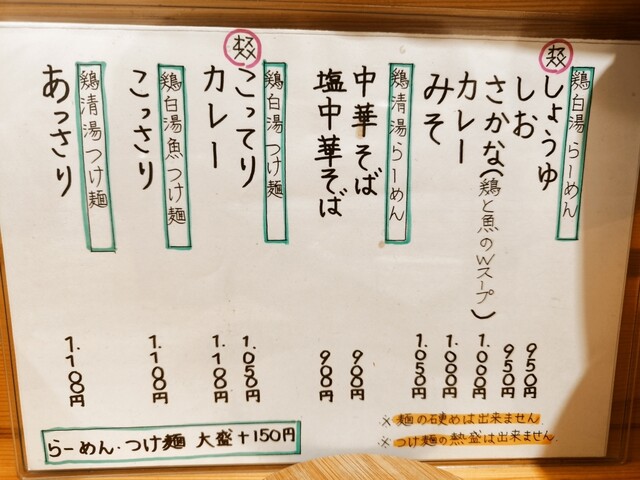 鶏白湯らーめん
しょうゆ 950円
しお 950円
さかな(鶏と魚のWスープ) 1.000円
カレー 1.000円
みそ 1.050円
鶏清湯らーめん
中華そば 900円
塩中華そば 900円
鶏白湯つけ麺
こってり 1.050円
カレー 1.100円
鶏白湯魚つけ麺
こっさり 1.100円
鶏清湯つけ麺
あっさり 1.100円
らーめん・つけ麺 大盛+150円
※麺の硬めは出来ません
※つけ麺の熱盛は出来ません